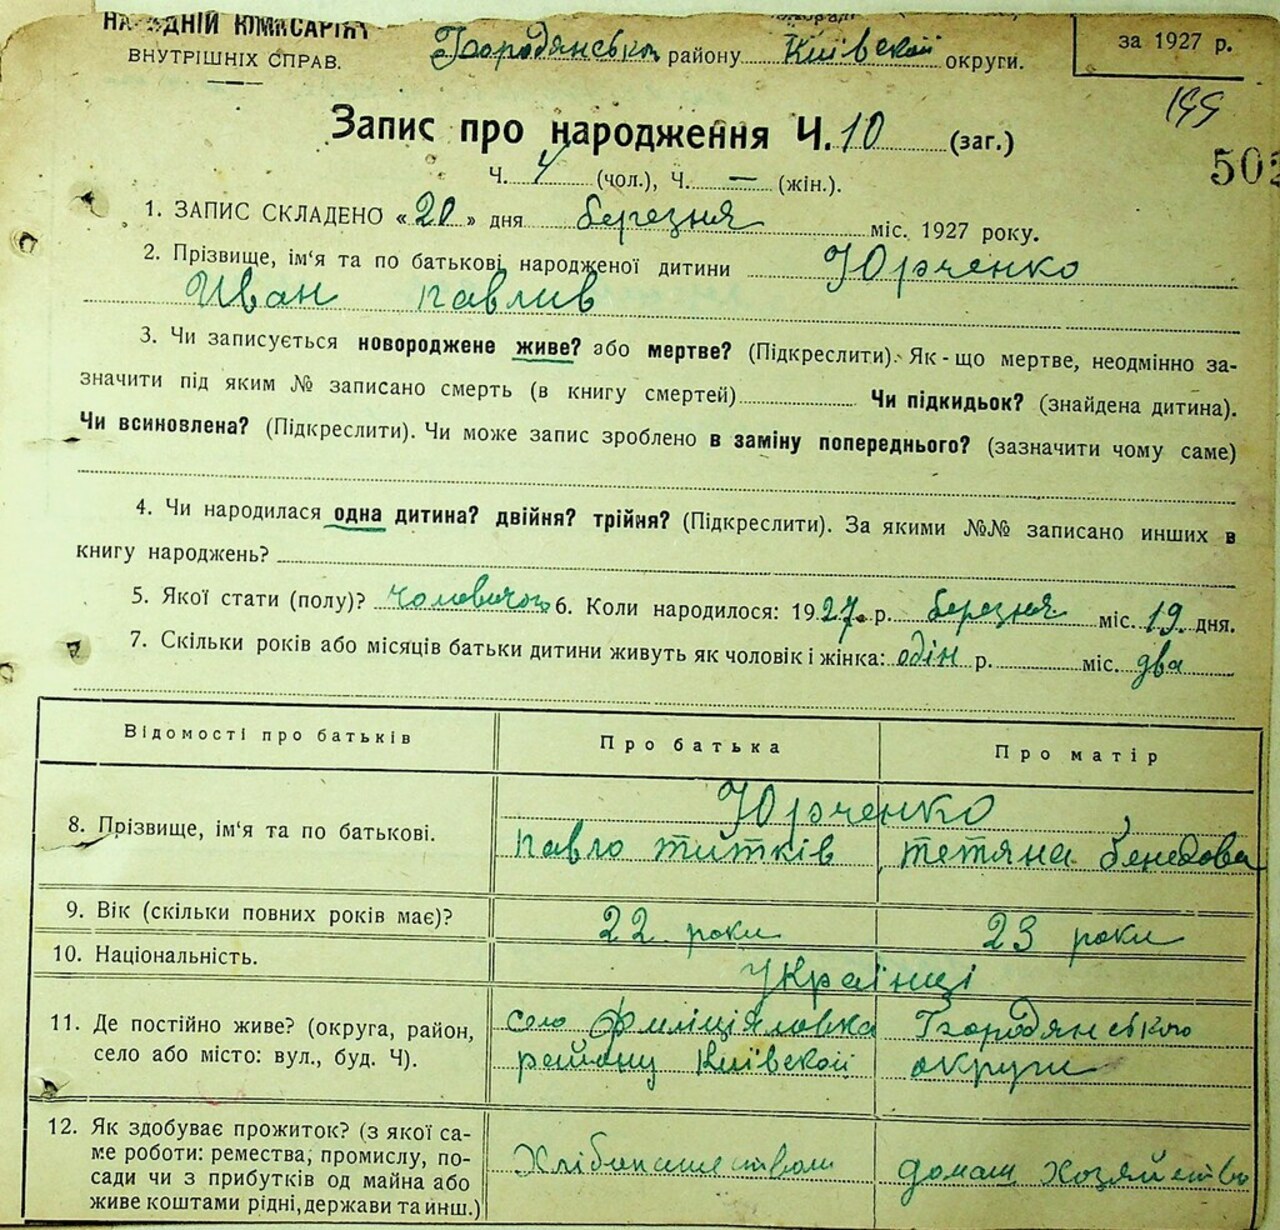 НАРОДНІЙ КОМІСАРІЯТ
ВНУТРІШНІХ СПРАВ.
району Київской округи.
за 1927 р.
502
Запис про народження Ч. 10 (заг.)
Ч. 4 (чол.), Ч. — (жін.).
1. ЗАПИС СКЛАДЕНО « 20 » дня березня міс. 1927 року.
2. Прізвище, ім'я та по батькові народженої дитини Юрченко
Иван Павлив
3. Чи записується новороджене живе? або мертве? (Підкреслити). Як-що мертве, неодмінно за-
значити під яким № записано смерть (в книгу смертей) Чи підкидьок? (знайдена дитина).
Чи всиновлена? (Підкреслити). Чи може запис зроблено в заміну попереднього? (зазначити чому саме)
4. Чи народилася одна дитина? двійня? трійня? (Підкреслити). За якими №№ записано инших в
книгу народжень?
5. Якої стати (полу)? чоловичого 6. Коли народилося: 1927 р. березня міс. 19 дня.
7. Скільки років або місяців батьки дитини живуть як чоловік і жінка: одін р. міс. два
Відомості про батьків Про батька Про матір
8. Прізвище, ім'я та по батькові. Юрченко
Павло Титків Тетяна
9. Вік (скільки повних років має)? 22 роки 23 роки
10. Національність. Українці
11. Де постійно живе? (округа, район, село
село або місто: вул., буд. Ч). району Київской округи
12. Як здобуває прожиток? (з якої са-
ме роботи: ремества, промислу, по-
сади чи з прибутків од майна або
живе коштами рідні, держави та инш.)
домаш хозяйство